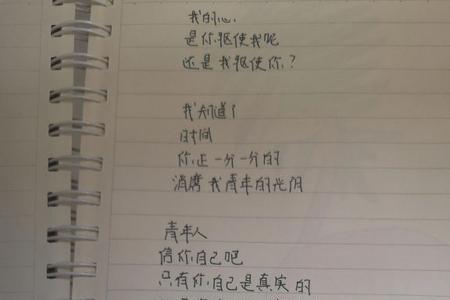 我的心
是你驱使我呢
还是我驱使你？
我知道了
时间
你正一分一分的
消磨我青年的光阴
青年人
信你自己吧
只有你自己是真实的